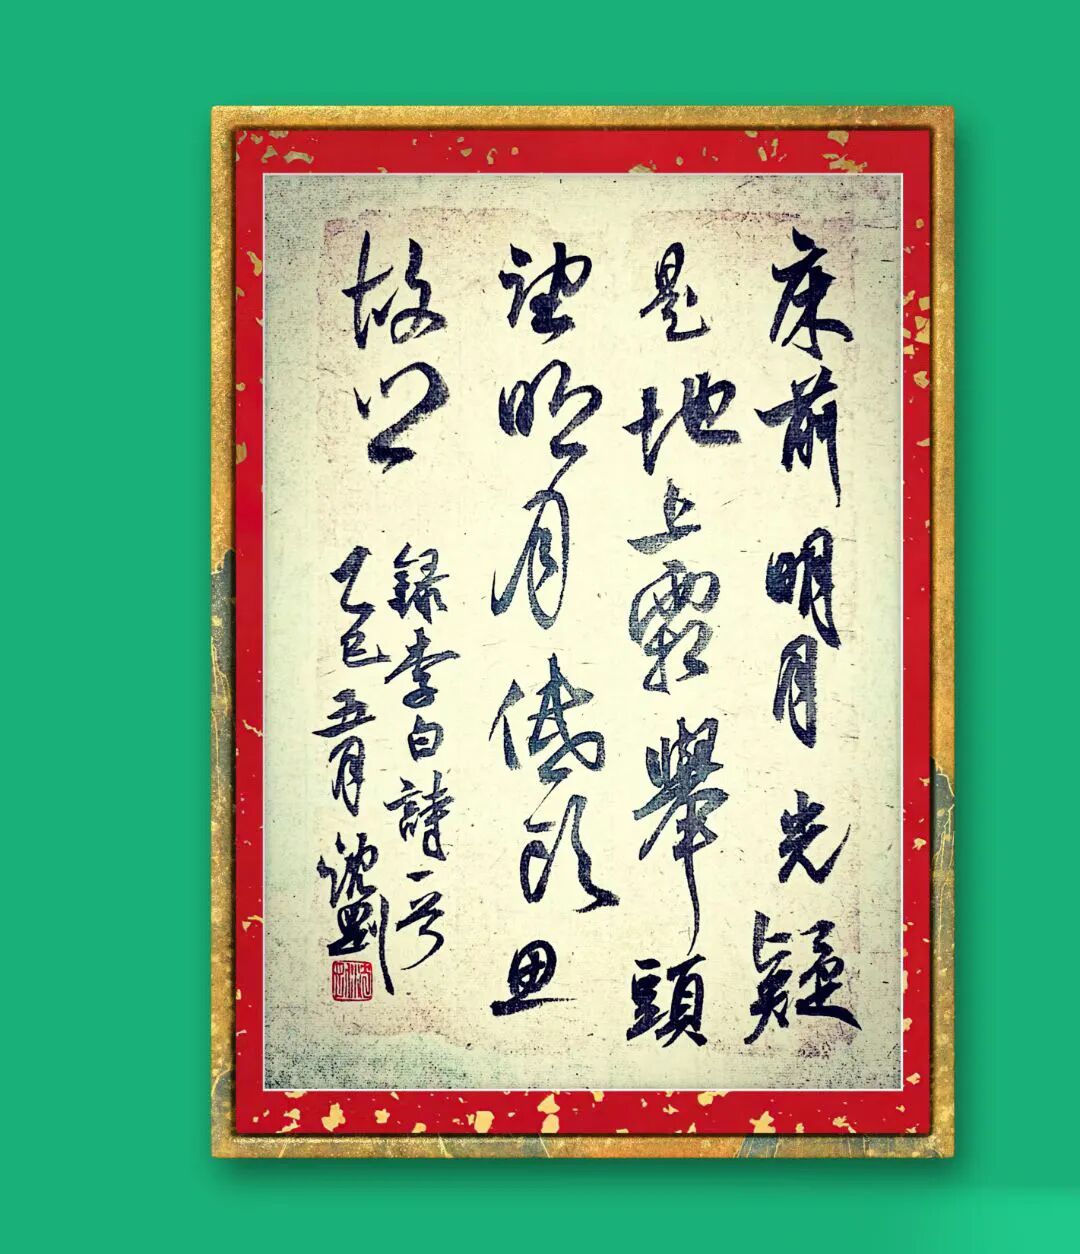 床前明月光疑
是地上霜舉頭
望明月低頭思
故鄉
錄李白詩一首
乙巳五月沈剛